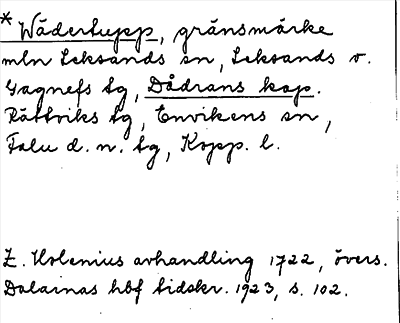 * Wädertupp, gränsmärke
mln Leksands sn, Leksands o.
Gagnefs tg, Dådrans kap.
Rättviks tg, Envikens sn,
Falu d. n. tg, Kopp. l.
Z. Holenius avhandling 1722, övers.
Dalarnas hbf tidskr. 1923, s. 102.